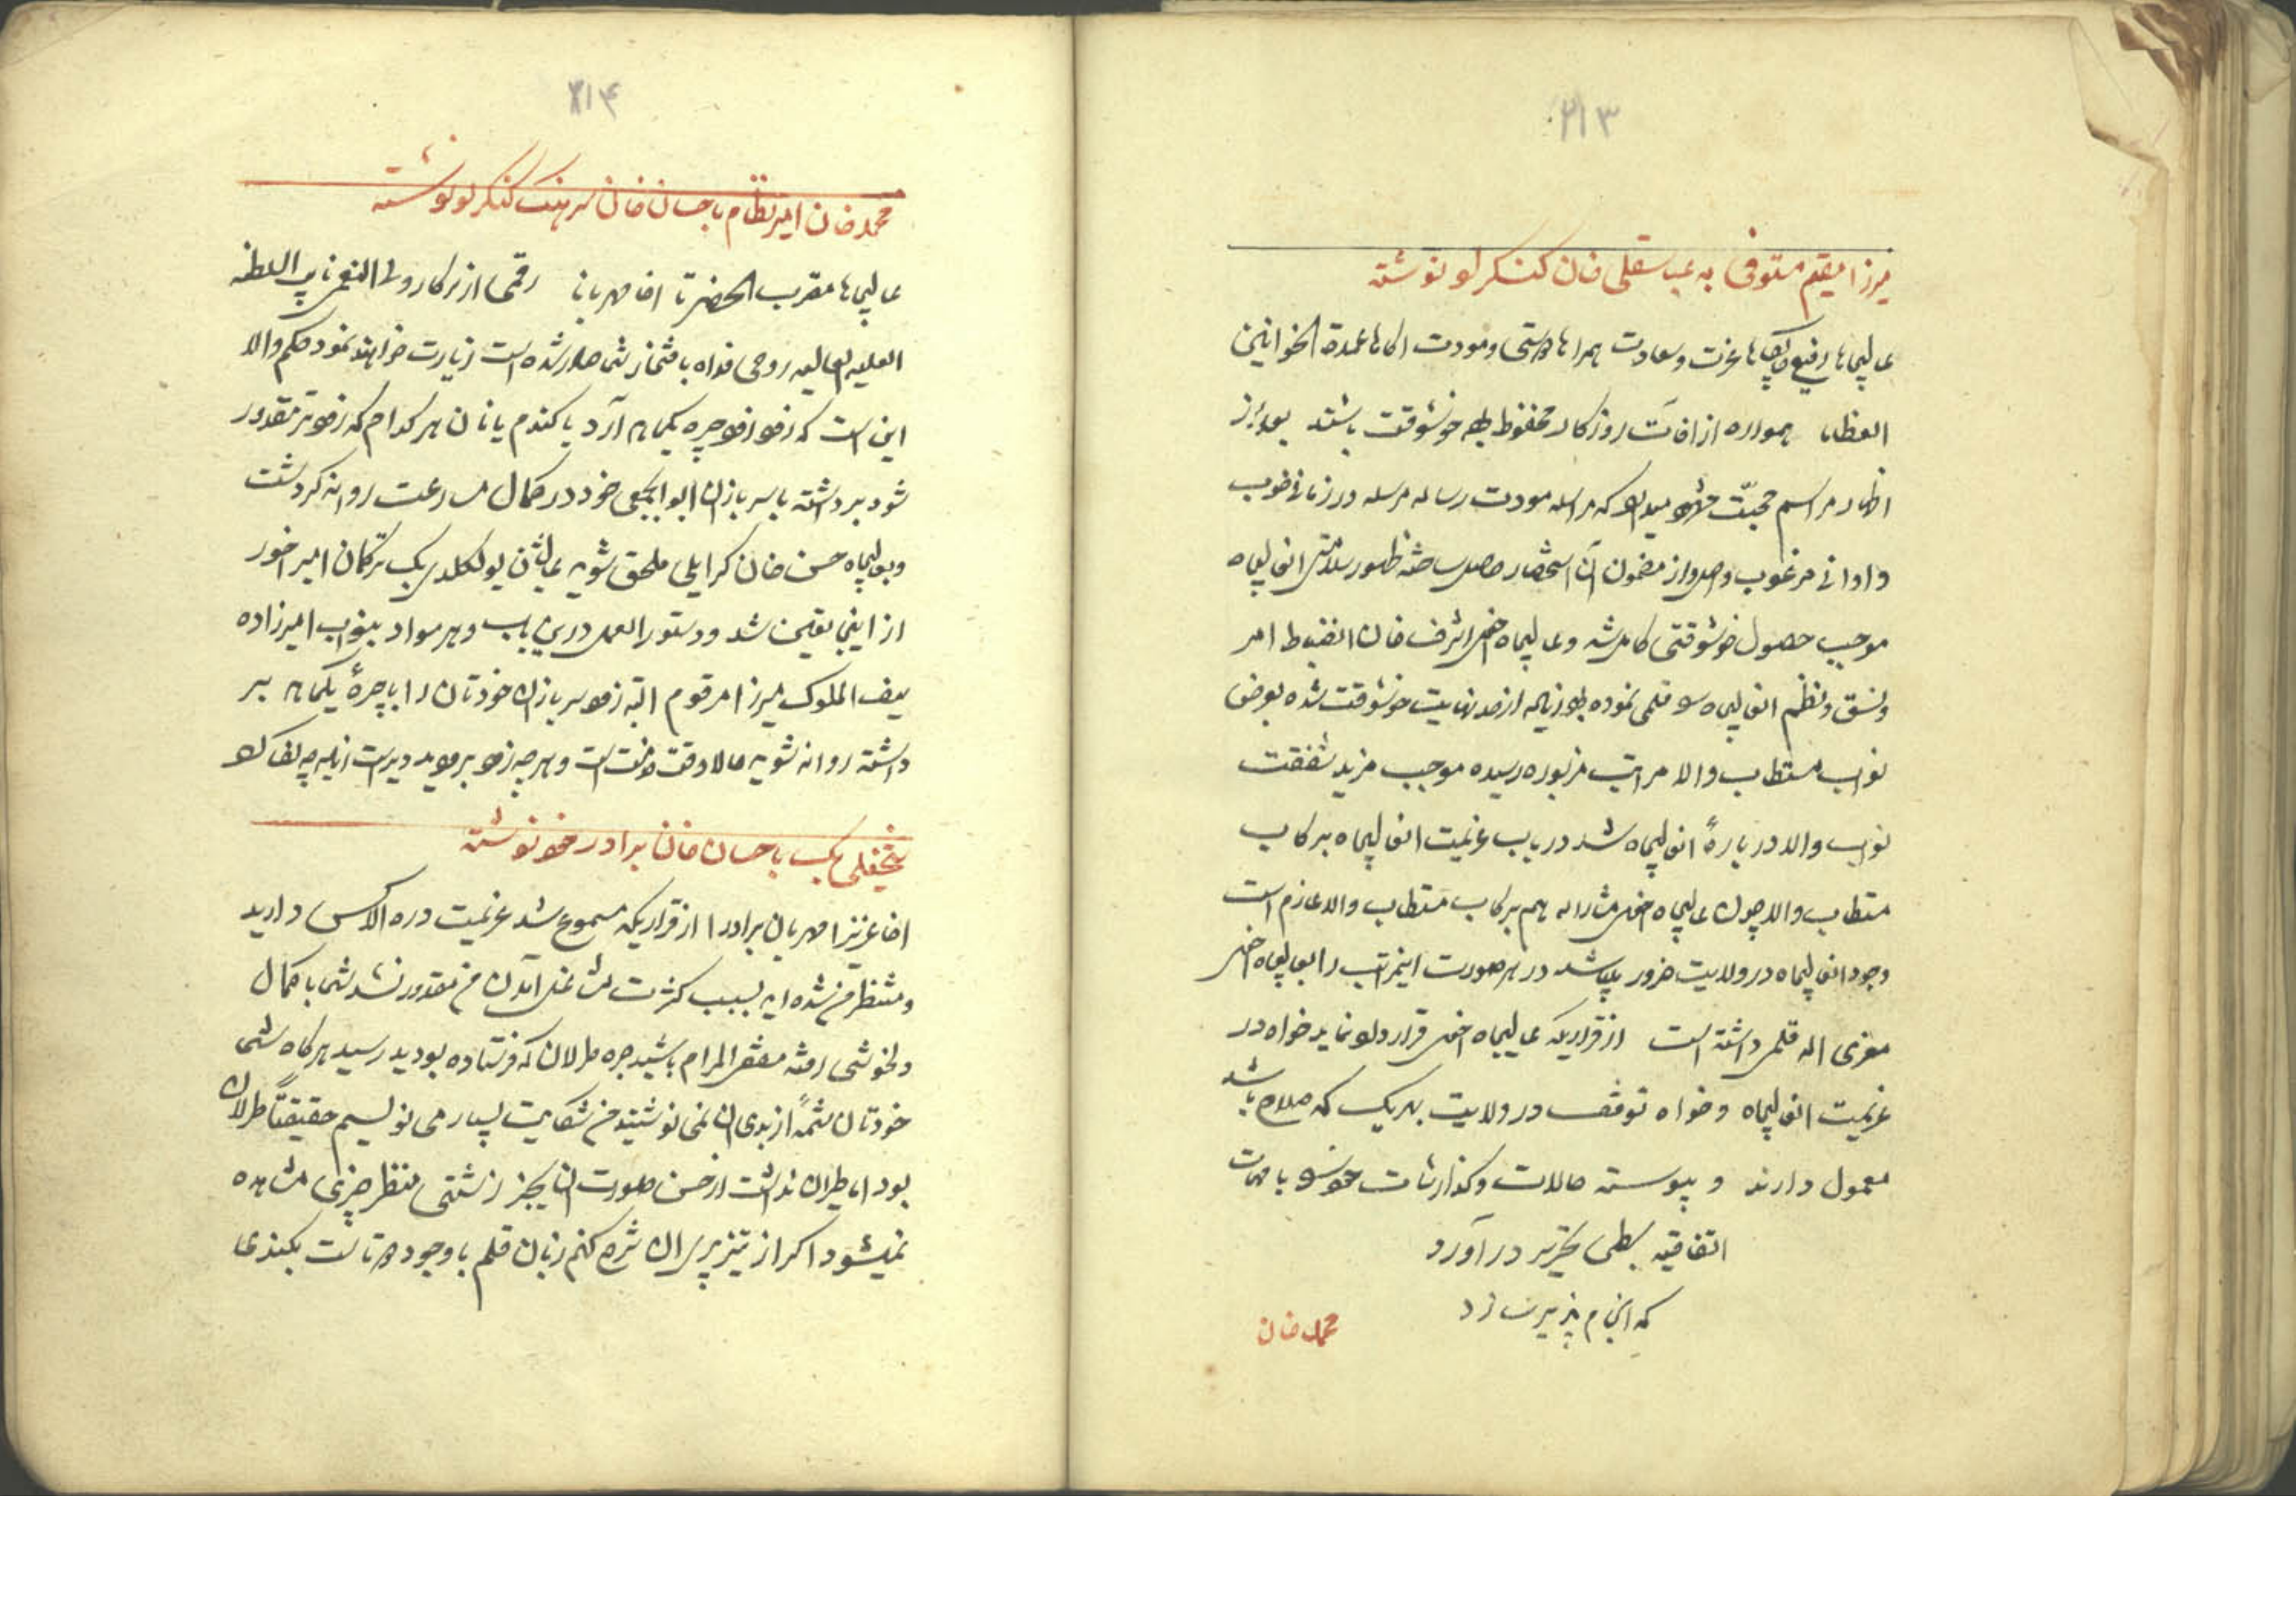 ۲۱۳
میرزا مقیم مستوفی به عباسقلی خان کنکرلو نوشته
عالیجاها رفیع جایکاها عزت و سعادت همراها دوستی و مودت اکاها عمدة الخوانین
العظاما همواره از افات روزکار محفوظ بوده خوشوقت باشند بعد از
اظهار مراسم محبّت مشهود میدارد که مراسله مودت رساله مرسله در زمانی خوب
و اوانی مرغوب واصل و از مضمون آن استحضار حاصل ساخته ظهور سلامتی انعالیجاه
موجب حصول خوشوقتی کامل شد و عالیجاه اخوی اشرف خان انضباط امر
و نسق و نظم انعالیجاه را قلمی نموده بود زیاده از حد نهایت خوشوقت شده بعرض
نواب مستطاب والا مراتب مزبوره رسیده موجب مزید شفقت
نواب والا در بارهٔ انعالیجاه شد در باب عزیمت انعالیجاه برکاب
مستطاب والا چون عالیجاه اخوی مشارالیه هم برکاب مستطاب والا عازم است
وجود انعالیجاه در ولایت ضرور میباشد در هر صورت اینمراتب را بعالیجاه اخوی
معزی الیه قلمی داشته است از قراریکه عالیجاه اخوی قرارداد نماید خواه در
عزیمت انعالیجاه و خواه توقف در ولایت بهریک که صلاح باشد
معمول دارند و پیوسته حالات و کذارشات خود را با مهمات
اتفاقیه بسطی تحریر در آورد
که انجام پذیر سازد
محمد خان
۲۱۴
محمد خان امیر نظام باحسان خان سرهنک کنکرلو نوشته
عالیجاها مقرب الحضرتا اخا مهربانا رقمی از سرکار ولی النعمی نایب السلطنه
العلیه العالیه روحی فداه بافتخار شما صادر شده است زیارت خواهند نمود حکم والا
این است که زود زود جیره یکماهه آرد یا کندم یا نان هر کدام که زودتر مقدور
شود برداشته با سربازان ابوابجمعی خود در کمال سرعت روانه کردشت
و بعالیجاه حسن خان کرایلی ملحق شوید عالیشان یولکلدی بک ترکمان امیر اخور
از اینجا تعیین شد و دستورالعمل درین باب و هر مواد بنواب امیرزاده
سیف الملوک میرزا مرقوم البته زود سربازان خودتان را با جیرهٔ یکماهه بر
داشته روانه شوید حالا وقت خدمت است و هر چه زود بروید دیر است زیاده چه نکارد
نجفقلی بک باحسان خان برادر خود نوشته
اخا عزیزا مهربان برادرا از قراریکه مسموع شد عزیمت دره الاکس دارید
و منتظر من شده اید بسبب کثرت مشغله آمدن من مقدور نشد شما با کمال
دلخوشی رفته مقضی المرام باشید جره طرلان که فرستاده بودید رسید هرکاه شما
خودتان شمهٔ از بدی ان نمی نوشتید من شکایت بسیار می نویسم حقیقتاً طرلان
بود اما طیران نداشت از حسن صورت ان بجز زشتی منظر چیزی مشاهده
نمیشود اکر از تیز پری ان شرح کنم زبان قلم با وجود دو تاست بکندی